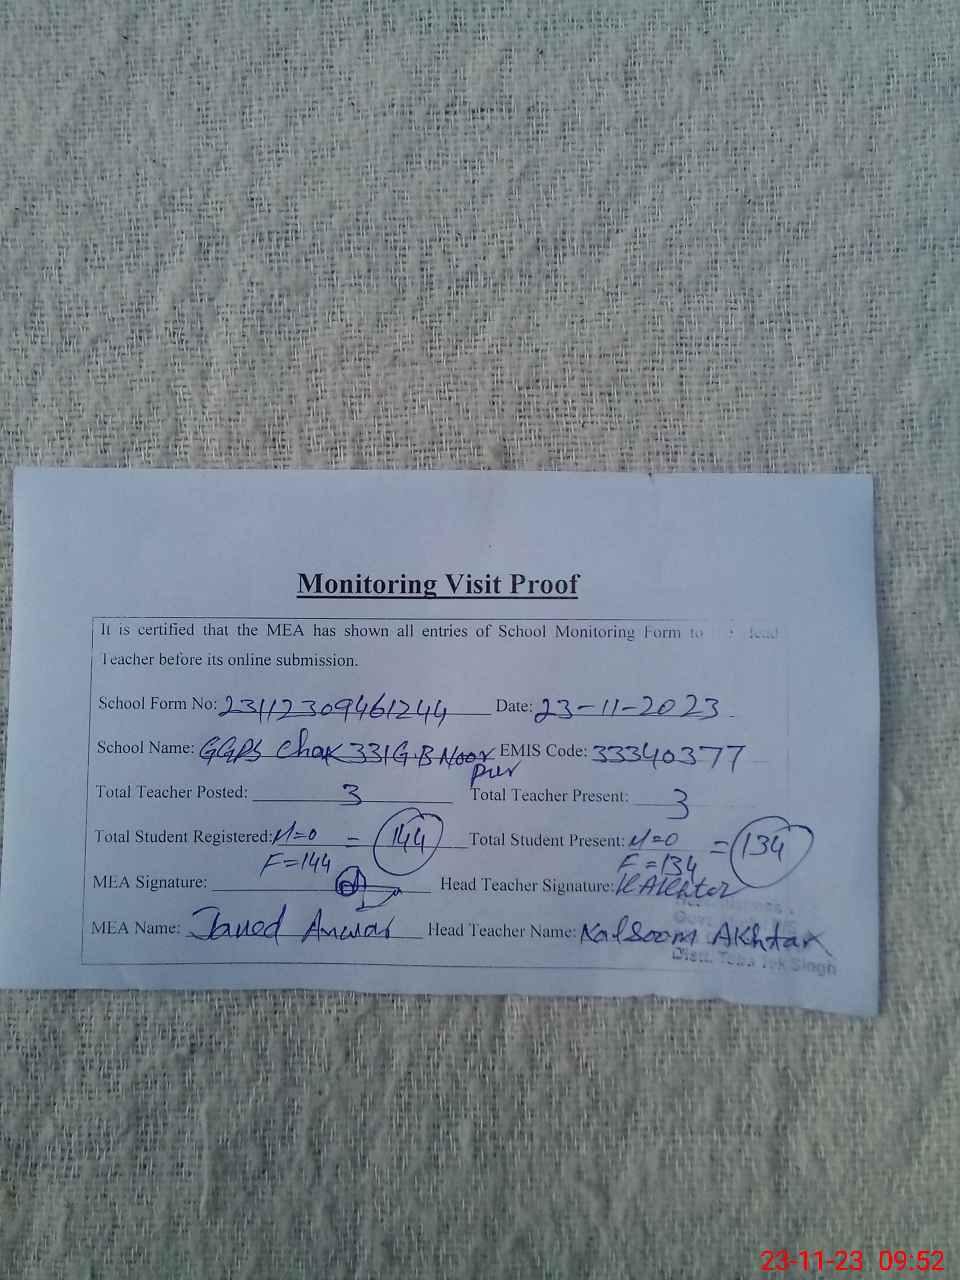 Monitoring Visit Proof
It is certified that the MEA has shown all entries of School Monitoring Form to Head
Teacher before its online submission.
School Form No: 23112309461244 Date: 23-11-2023
School Name: GGPS Chak 331 G.B Noor EMIS Code: 33340377
pur
Total Teacher Posted: 3 Total Teacher Present: 3
Total Student Registered: M=0 = 144 Total Student Present: M=0 = 134
F=144 F=134
MEA Signature: Head Teacher Signature: K Akhtar
MEA Name: Javed Anwar Head Teacher Name: Kalsoom Akhtar
Distt. Toba Tek Singh
23-11-23 09:52